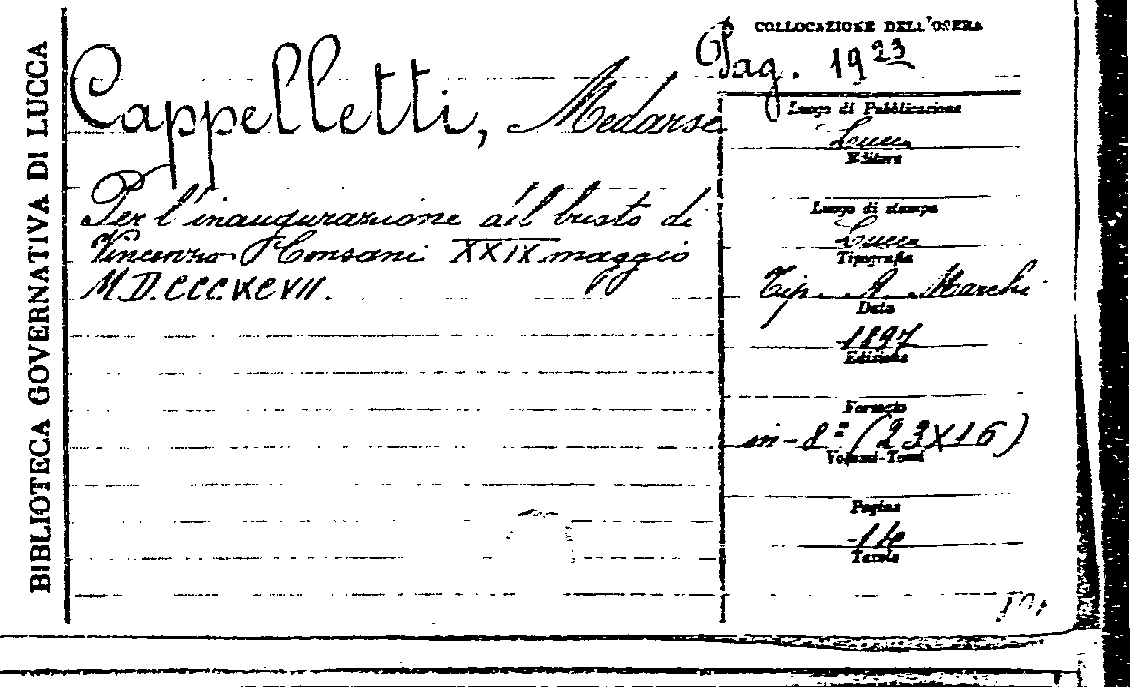 BIBLIOTECA GOVERNATIVA DI LUCCA
Cappelletti, Medarse
Per l'inaugurazione del busto di
Vincenzo Consani XXIX maggio
M.D.CCC.XCVII.
COLLOCAZIONE DELL'OPERA
Pag. 19 23
Luogo di Pubblicazione
Lucca
Editore
Luogo di stampa
Lucca
Tipografia
Tip. A. Marchi
Data
1897
Edizione
Formato
in-8º (23X16)
Volumi-Tomi
Pagine
14
Tavole